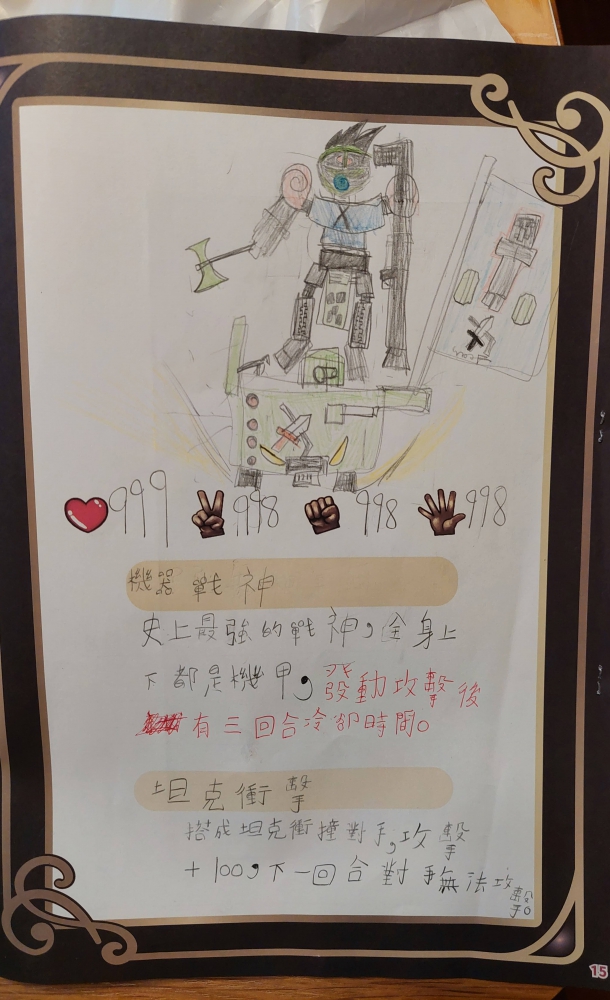 999 998 998 998
機器戰神
史上最強的戰神,全身上
下都是機甲,發動攻擊後
有三回合冷卻時間。
坦克衝擊
搭成坦克衝撞對手,攻擊
+100,下一回合對手無法攻擊。
15